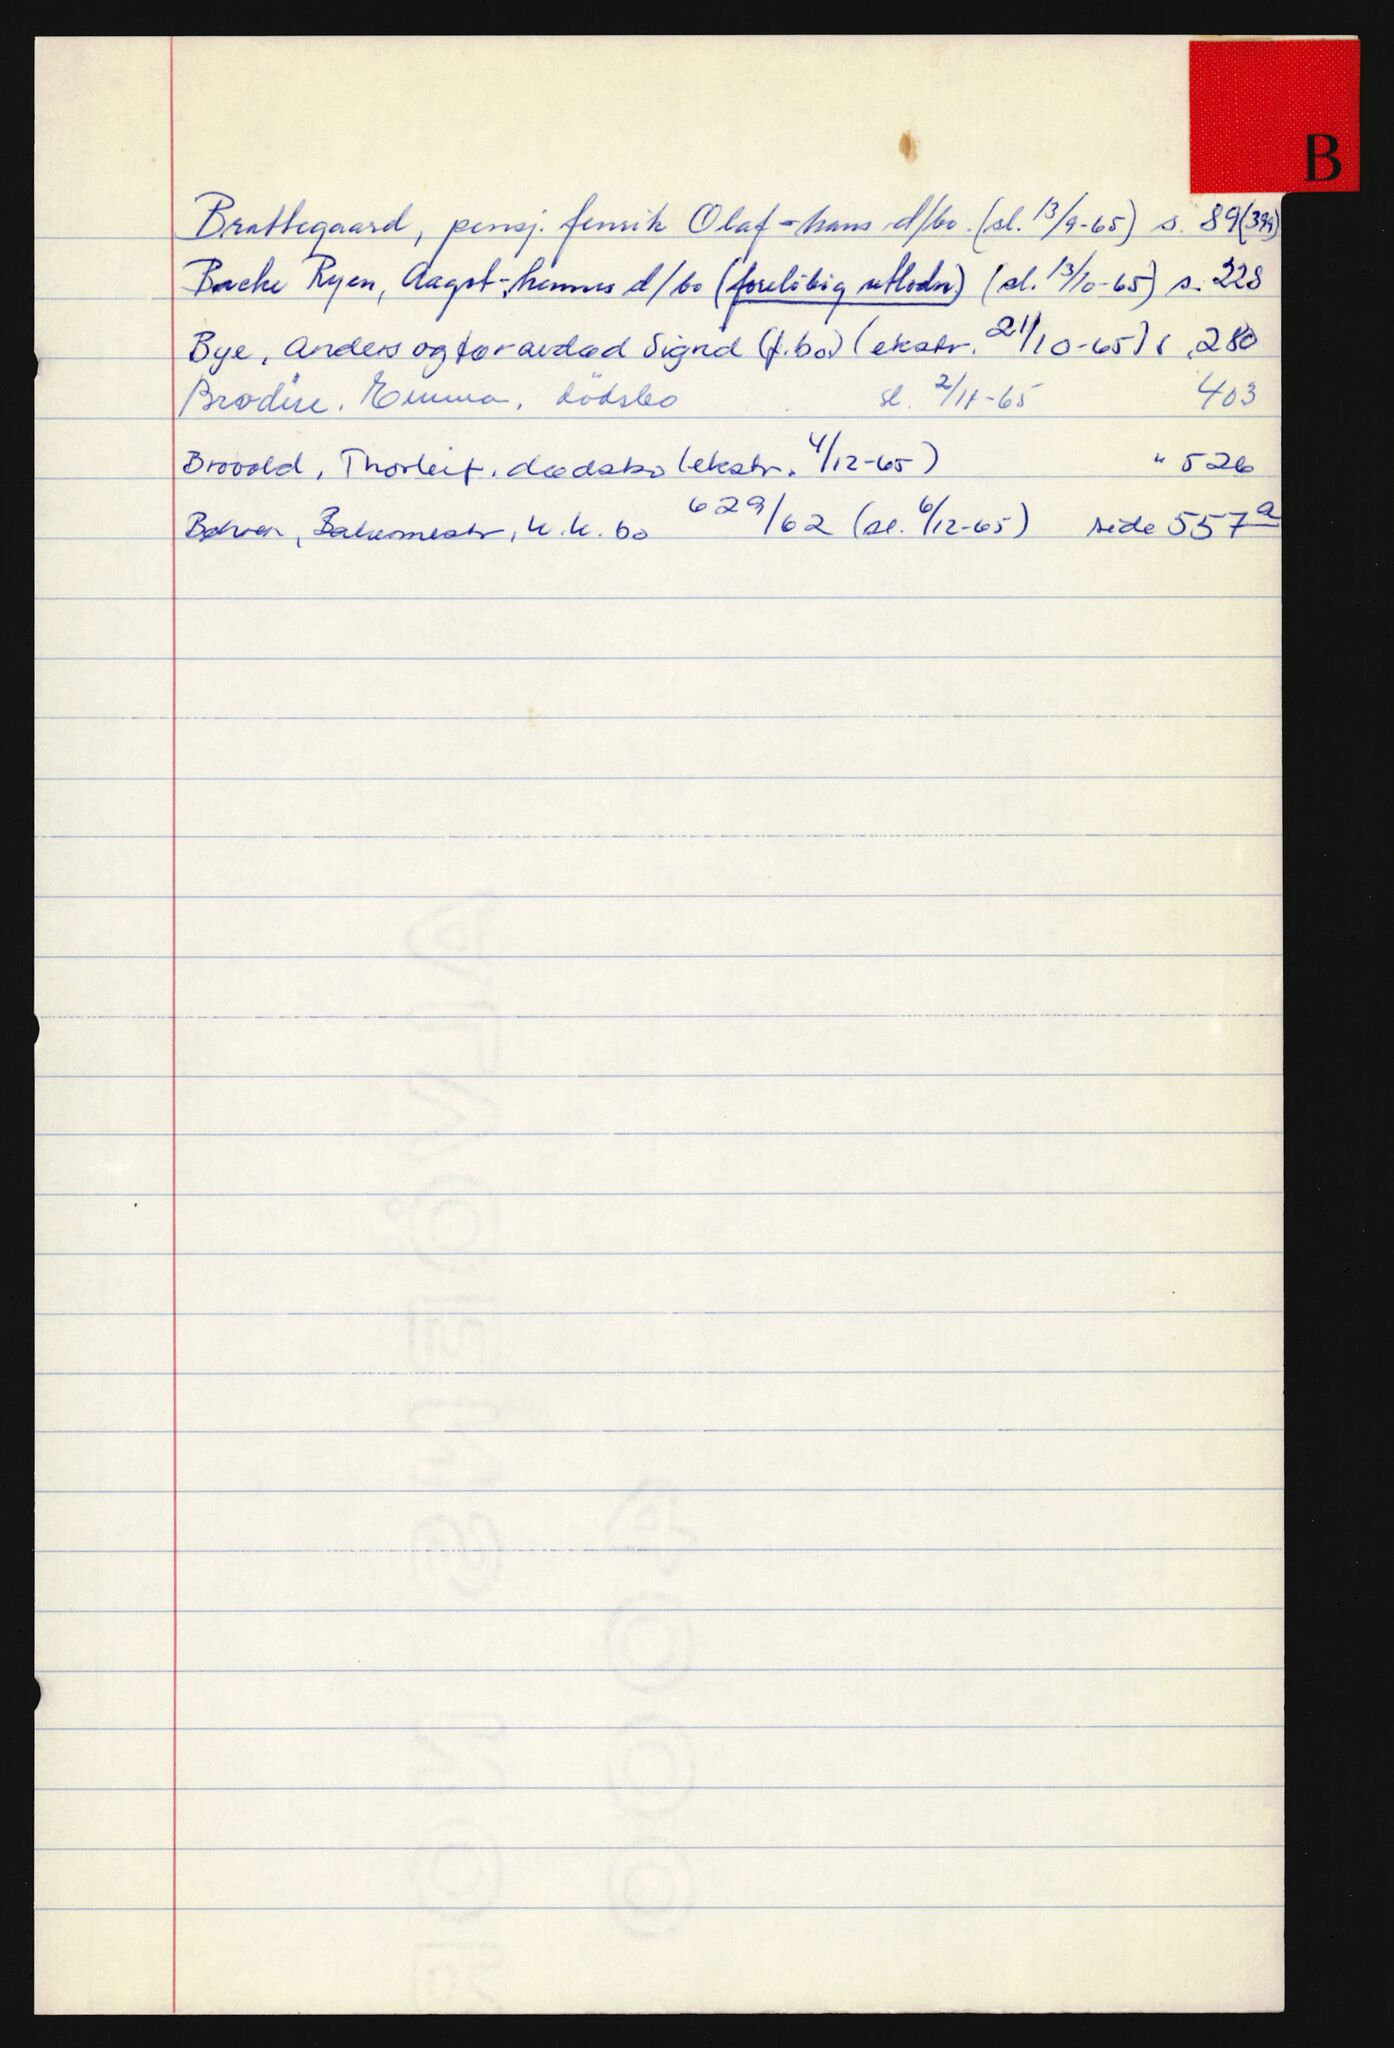 B
Brattegaard, pensj. fenrik Olaf - hans d/bo. (sl. 13/9-65) s. 89 (399)
Backe Ryen, Aagot - hennes d/bo (foreløbig utlodn) (sl. 13/10-65) s. 228
Bye, Anders og før avdød Signe (f.bo) (ekstr. 21/10-65) s. 280
Brodin, Emma, dödsbo sl. 2/11-65 403
Brovold, Thorleif, dødsbo (ekstr. 4/12-65) " 526
Bakermestr, k.k. bo 629/62 (sl. 6/12-65) side 557a